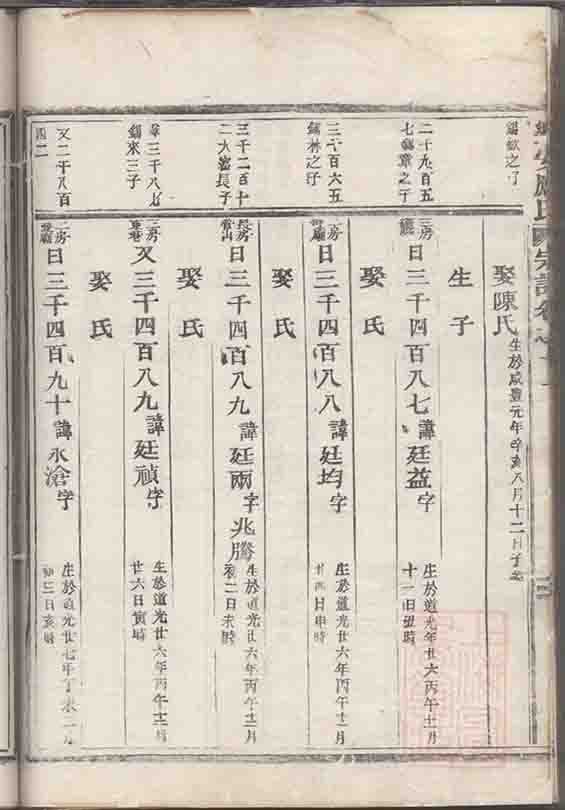 氏宗譜卷
錫欽之子
娶陳氏
生於咸豐元年辛亥八月十二日子時
生子
二千九百五
七錫章之子
三房
日三千四百八七諱廷益字
生於道光年廿六丙午十二月
十一日丑時
娶氏
三千百六五
錫林之子
二房
日三千四百八八諱廷均字
生於道光廿六年丙午十二月
廿四日申時
娶氏
三千二百十
二大濬長子
長房
日三千四百八九諱廷兩字兆騰
生於道光廿六年丙午十二月
初二日未時
娶氏
三千八
錫來三子
三房
又三千四百八九諱廷禎字
生於道光廿六年丙午十二月
廿六日寅時
娶氏
又二千八百
四二
二房
日三千四百九十諱永滄字
生於道光廿七年丁未二月
初三日亥時